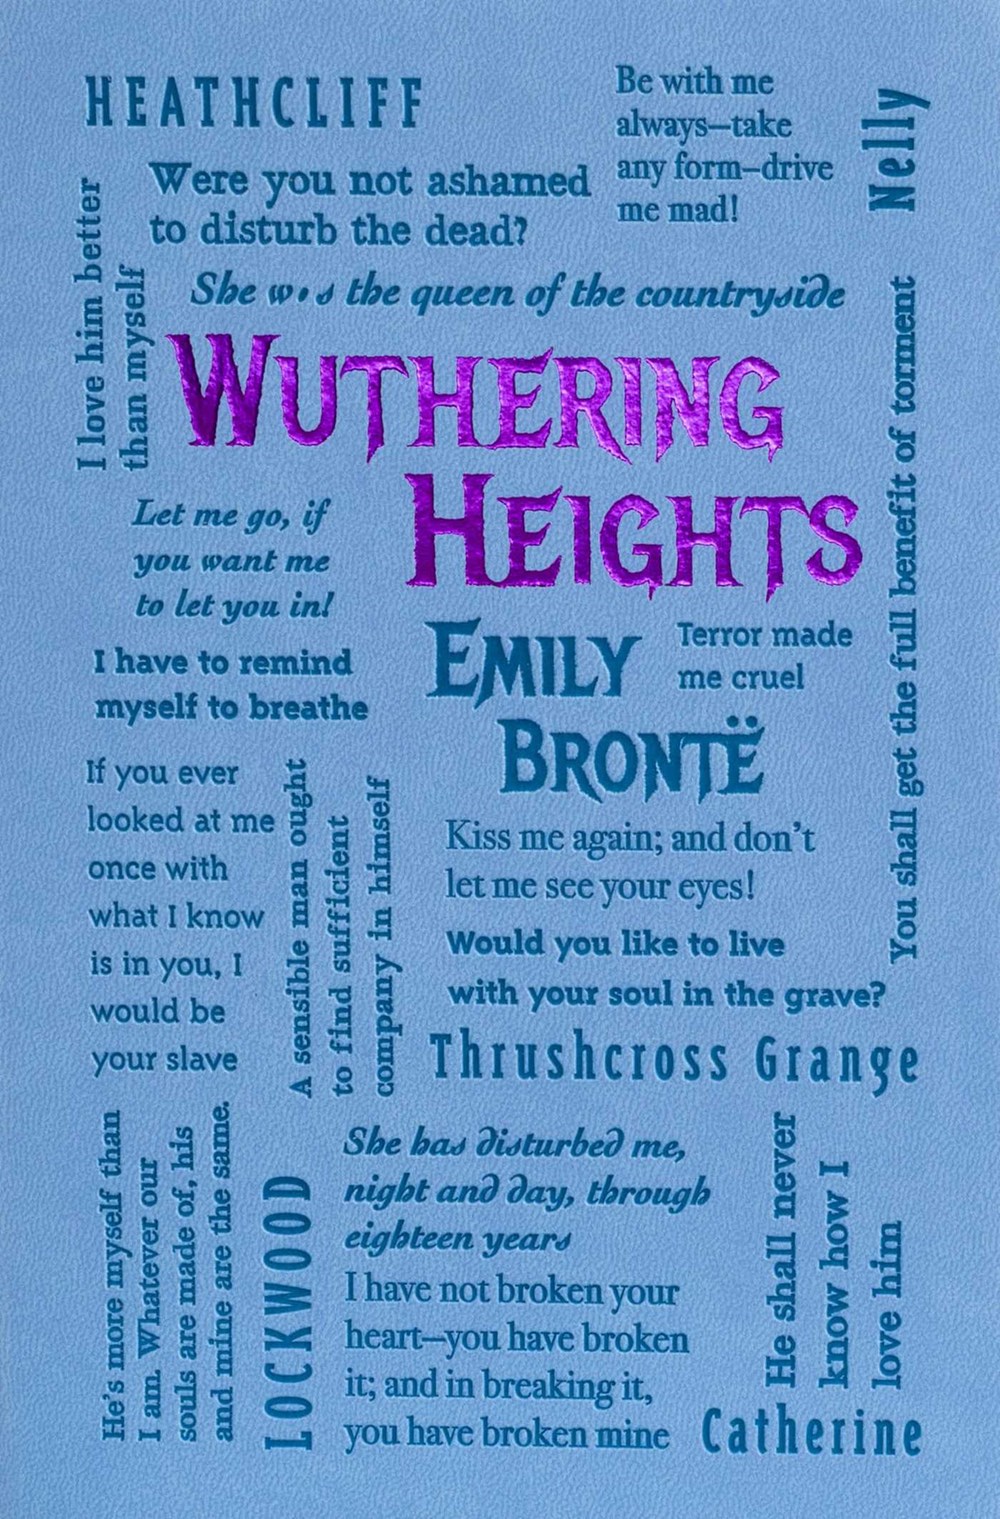 HEATHCLIFF
Be with me
always—take
any form—drive
me mad!
Nelly
Were you not ashamed
to disturb the dead?
I love him better
than myself
She was the queen of the countryside
WUTHERING
HEIGHTS
You shall get the full benefit of torment
Let me go, if
you want me
to let you in!
EMILY
BRONTË
Terror made
me cruel
I have to remind
myself to breathe
If you ever
looked at me
once with
what I know
is in you, I
would be
your slave
A sensible man ought
to find sufficient
company in himself
Kiss me again; and don't
let me see your eyes!
Would you like to live
with your soul in the grave?
Thrushcross Grange
He's more myself than
I am. Whatever our
souls are made of, his
and mine are the same.
LOCKWOOD
She has disturbed me,
night and day, through
eighteen years
I have not broken your
heart—you have broken
it; and in breaking it,
you have broken mine
He shall never
know how I
love him
Catherine